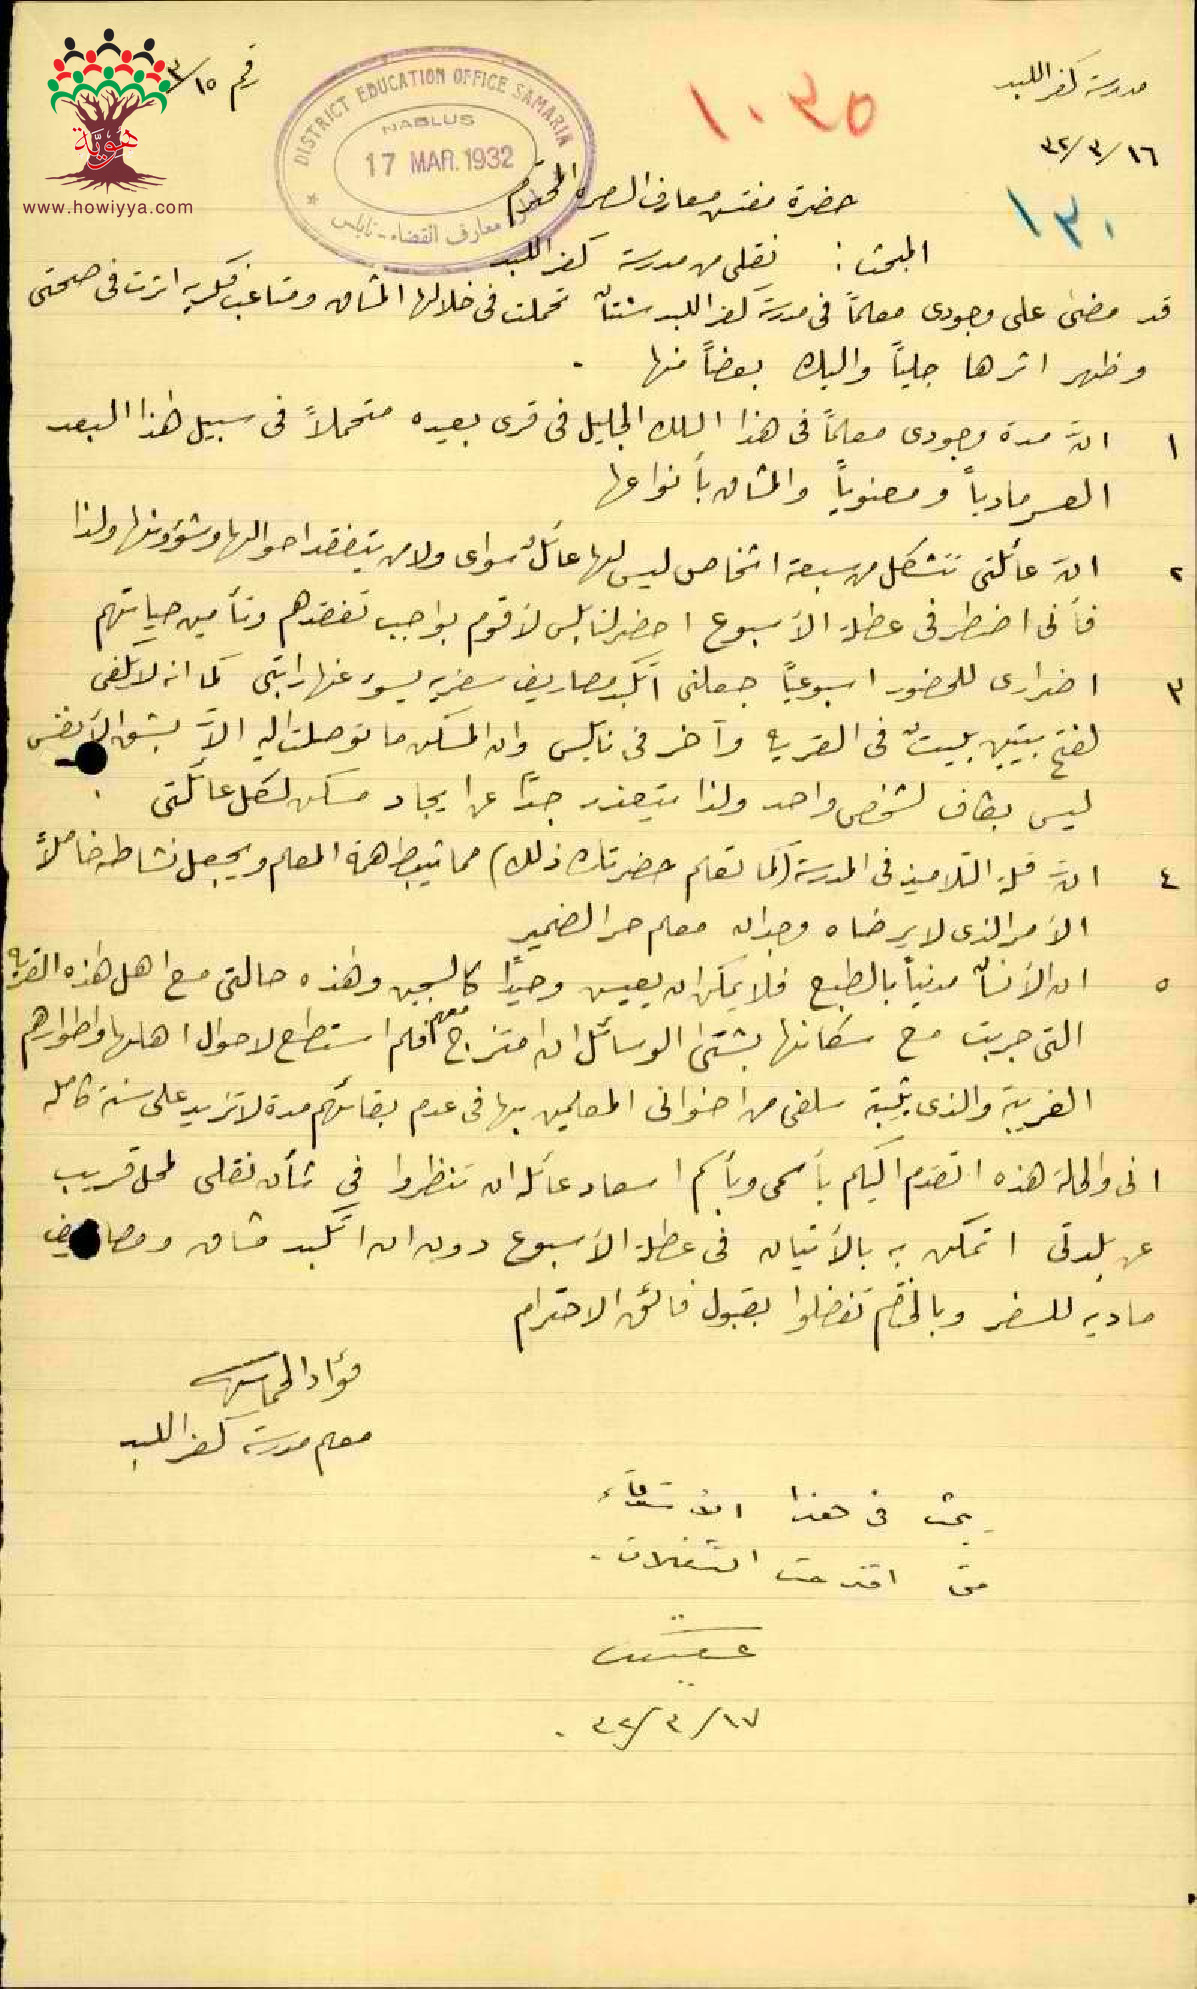 مدرسة كفر اللبد
رقم ١٥/٣
هوية
www.howiyya.com
DISTRICT EDUCATION OFFICE SAMARIA
NABLUS
17 MAR. 1932
معارف القضاء - نابلس
١٠٣٥
١٦/٣/٣٢
١٣٠
حضرة مفتش معارف السامره المحترم
المبحث : نقلي من مدرسة كفر اللبد
قد مضى على وجودي معلماً في مدرسة كفر اللبد سنتان تحملت في خلالها المشاق ومتاعب فكريه اثرت في صحتي
وظهر اثرها جلياً واليك بعضاً منها .
١ ان مدة وجودي معلماً في هذا السلك الجليل في قرى بعيده متحملاً في سبيل هذا البعد
العسر مادياً ومعنوياً والمشاق بأنواعها
٢ ان عائلتي تتشكل من سبعة اشخاص ليس لها عائل سواي ولا من يتفقد احوالها وشؤونها ولذا
فأني اضطر في عطلة الأسبوع احضر لنابلس لاقوم بواجب تفقدهم وتأمين حياتهم
٣ اضراري للحضور اسبوعياً جعلني اتكبد مصاريف سفريه راتبي كما انه لا يكفي
لفتح بيتين بيت في القريه وآخر في نابلس وان المسكن ما توصلت اليه الا بشق الأنفس
ليس بكاف لشخص واحد ولذا يتعذر جداً عن ايجاد مسكن لكل عائلتي
٤ ان قلة التلاميذ في المدرسة (كما تعلم حضرتك ذلك) مما يثبط همة المعلم ويجعل نشاطه خاملاً
الأمر الذي لا يرضاه وجدان معلم حر الضمير
٥ ان الأنسان مدنياً بالطبع فلا يمكن ان يعيش وحيداً كالسجين وهذه حالتي مع اهل هذه القريه
التي جربت مع سكانها بشتى الوسائل ان امتزج معهم فلم استطع لاحوال اهلها واطوارهم
الغريبة والذي يثبته سلفي من اخواني المعلمين بها في عدم بقائهم مدة لا تزيد على سنة كامله
اني والحالة هذه اتقدم اليكم بأسمي وبأسم اسعاد عائله ان تنظروا في شأن نقلي لمحل قريب
عن بلدتي اتمكن به بالأتيان في عطلة الأسبوع دون ان اتكبد مشاق ومصاريف
ماديه للسفر وبالختام تفضلوا بقبول فائق الاحترام
فؤاد
معلم مدرسة كفر اللبد
يبحث في هذا
متى التنقلات .
١٧/٣/٣٢ .